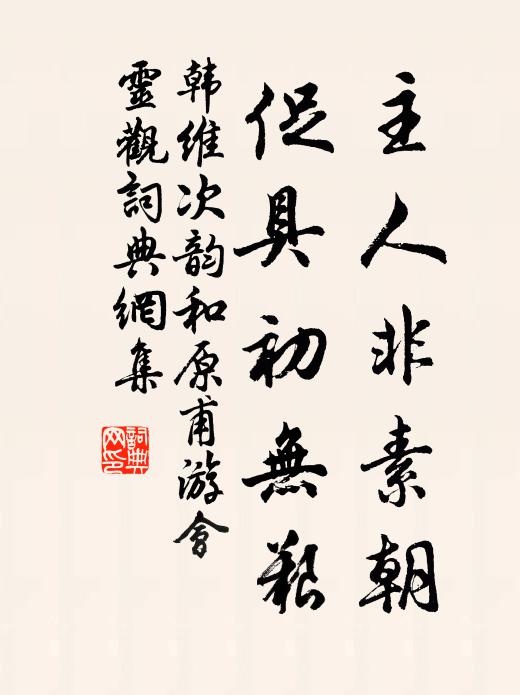 主人非素朝
促具初無艱
韩維次韵和原甫游會
靈觀詞典網集
詞典
网印